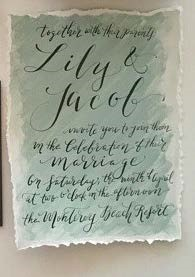 together with their parents
Lily &
Jacob
invite you to join them
in the Celebration of their
marriage
on Saturday, the ninth of
at two o'clock in the afternoon
the Beach Resort